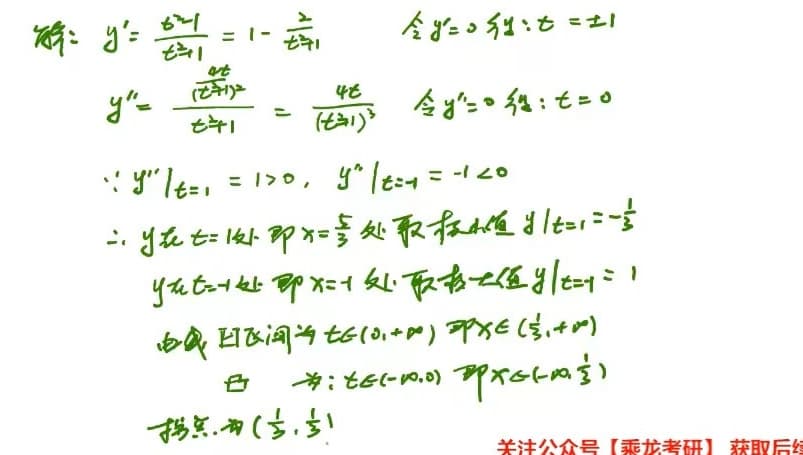 解: y' = \frac{t^2-1}{t^2+1} = 1 - \frac{2}{t^2+1} 令y'=0得: t=±1
y'' = \frac{\frac{4t}{(t^2+1)^2}}{t^2+1} = \frac{4t}{(t^2+1)^3} 令y''=0得: t=0
∵ y''|t=1 = 1>0, y''|t=-1 = -1<0
∴ y在t=1处即x=\frac{5}{3}处取极小值y|t=1=-\frac{1}{3}
y在t=-1处即x=-1处取极大值y|t=-1=1
曲线凹区间为t∈(0,+∞)即x∈(\frac{1}{3},+∞)
凸 为: t∈(-∞,0)即x∈(-∞,\frac{1}{3})
拐点为(\frac{1}{3},\frac{1}{3})
关注公众号【乘龙考研】获取后续